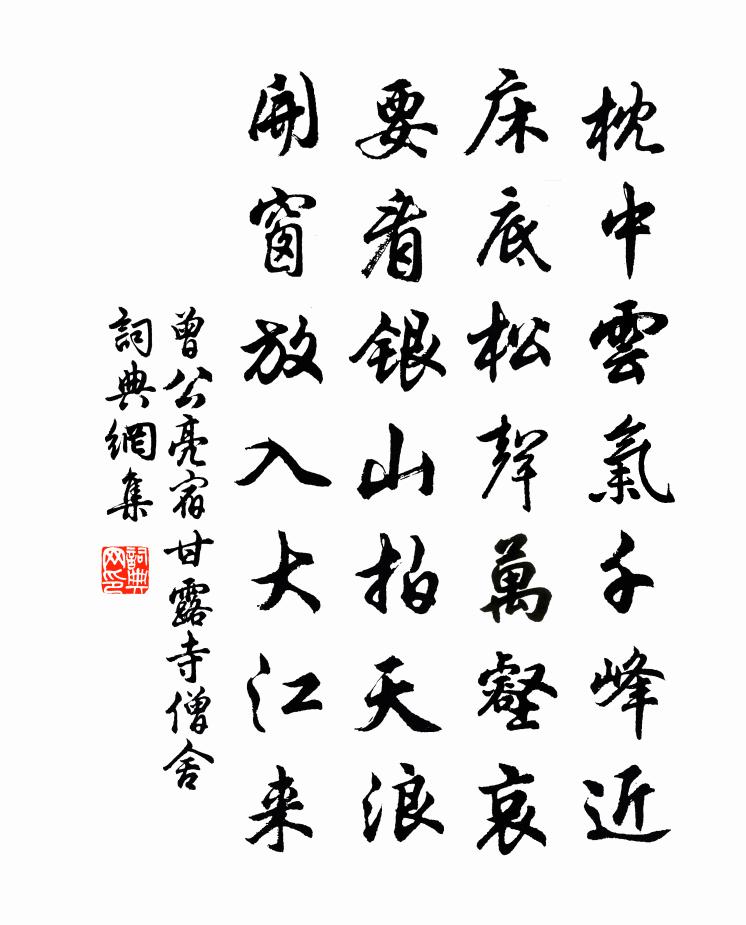 枕中雲氣千峰近
床底松聲萬壑哀
要看銀山拍天浪
開窗放入大江来
曾公亮宿甘露寺僧舍
詞典網集
詞典
网印